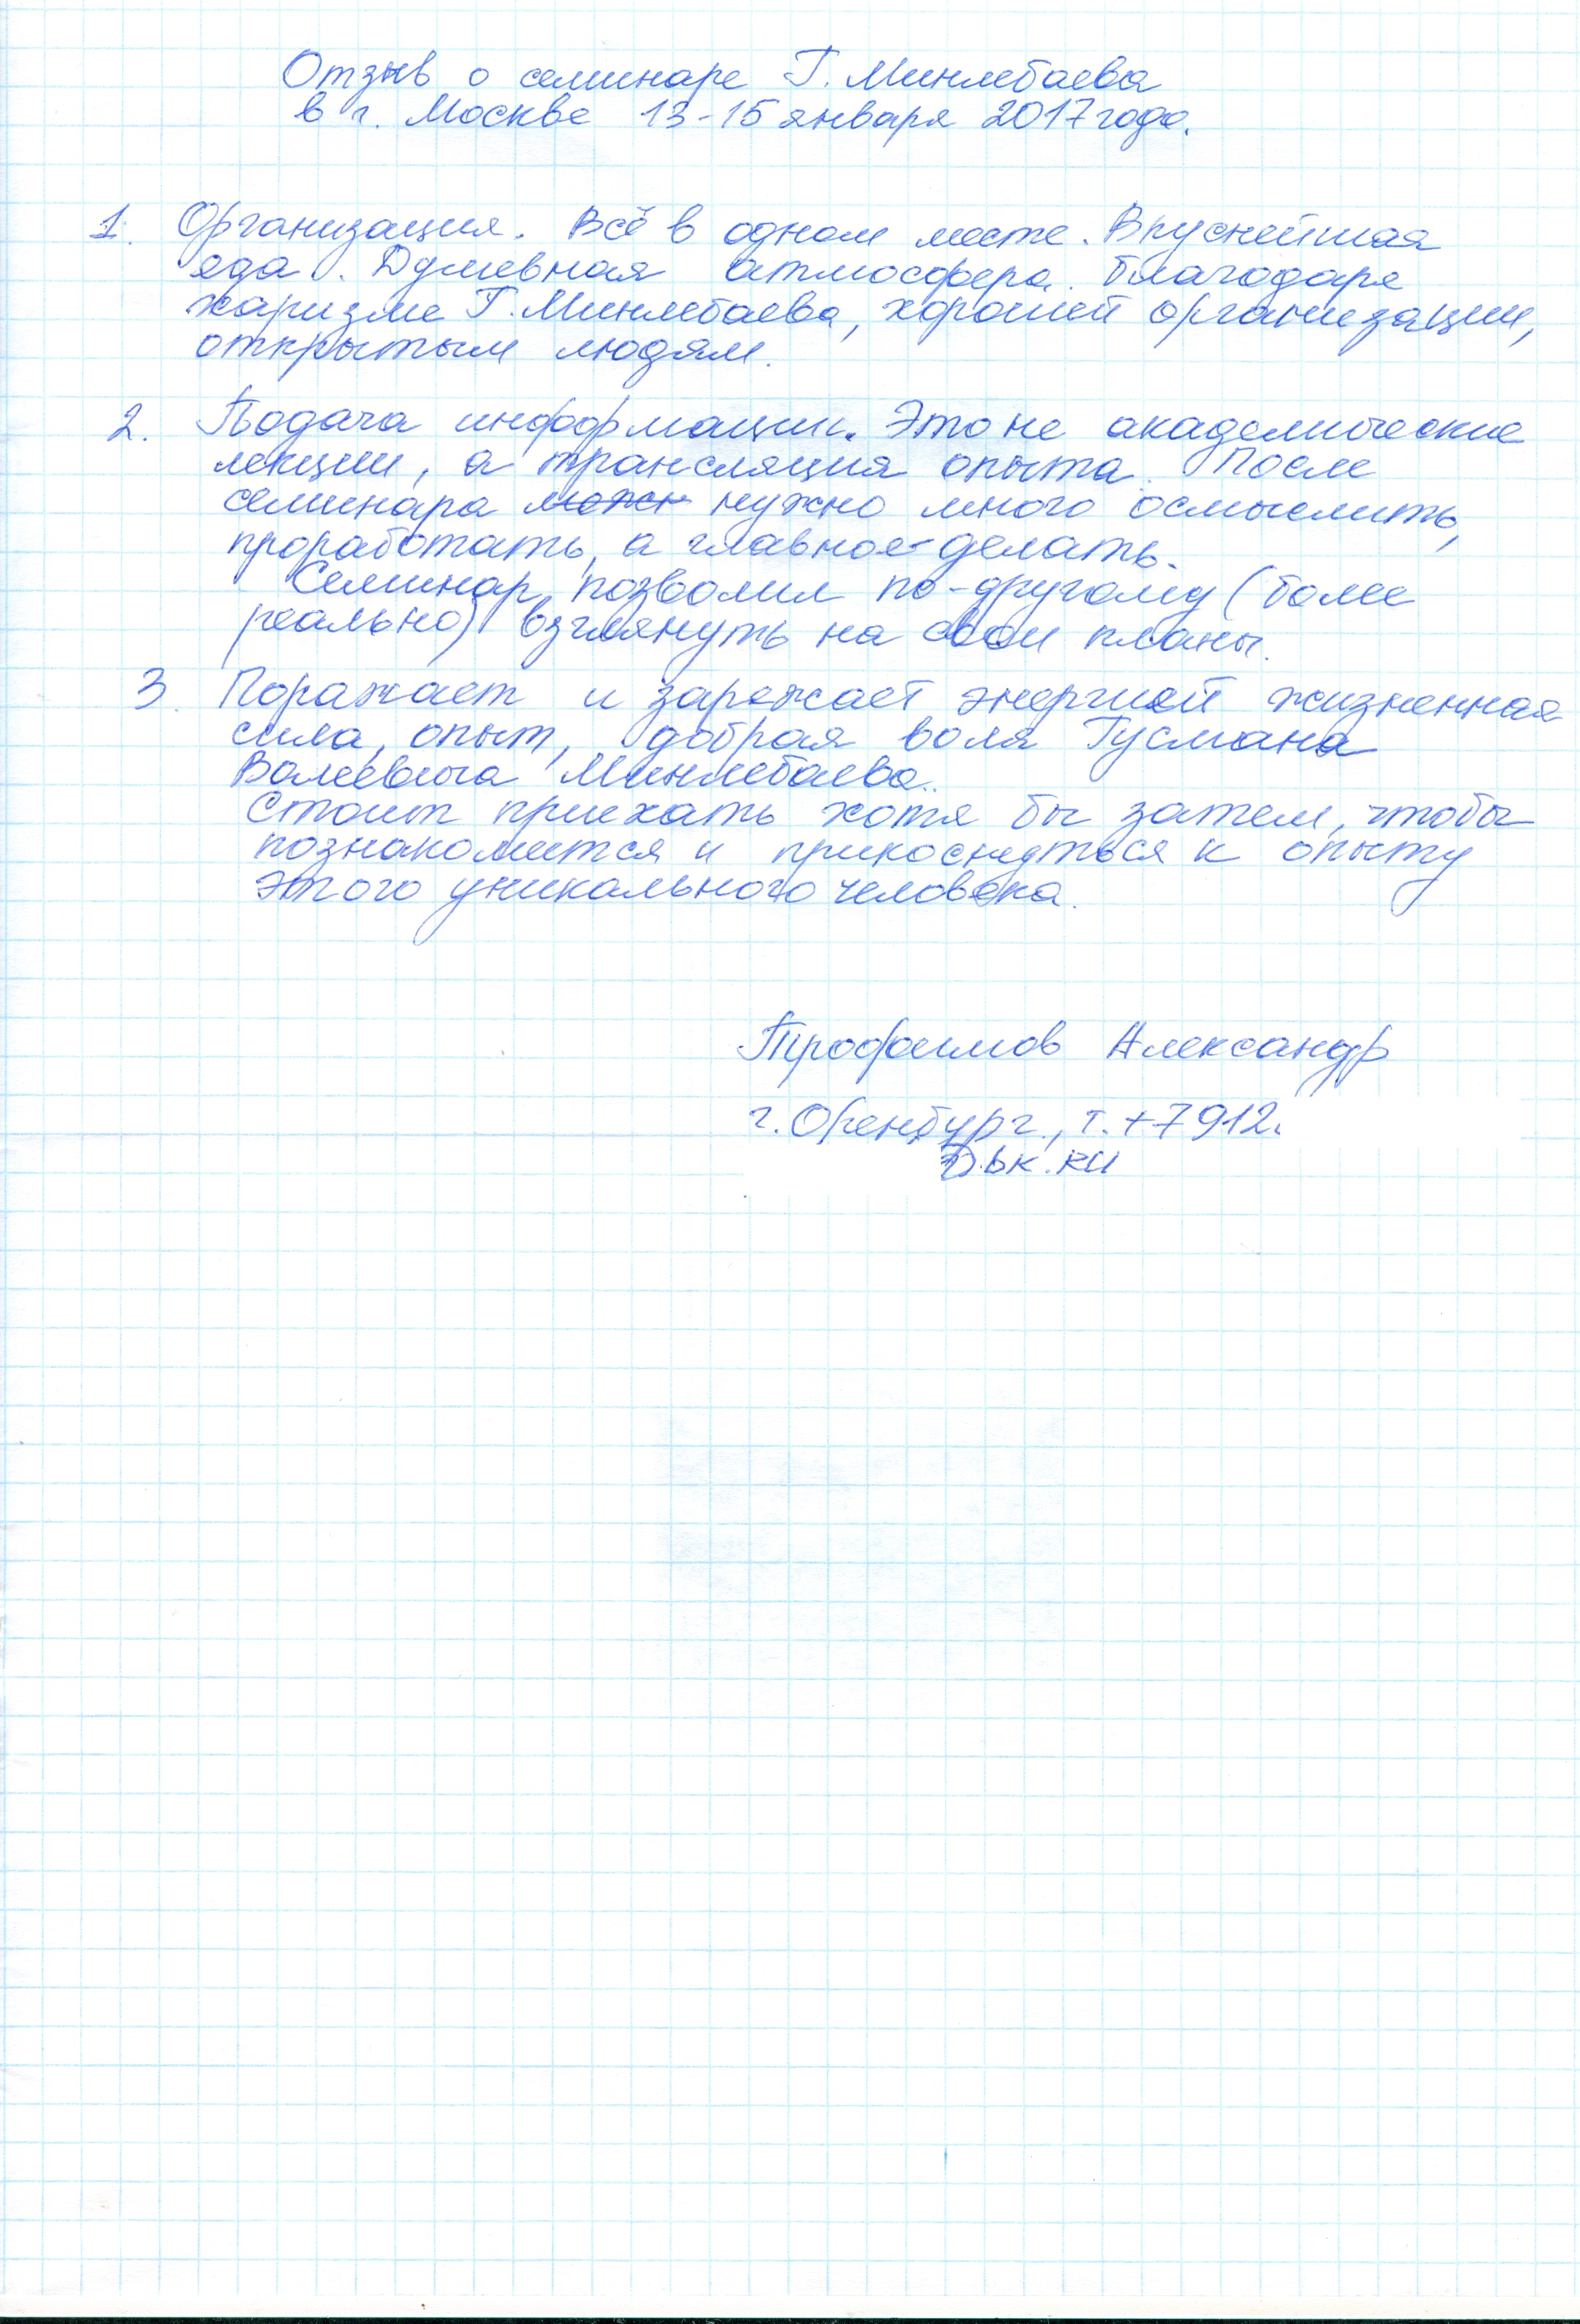 Отзыв о семинаре Г. Минлебаева
в г. Москве 13-15 января 2017 года.
1. Организация. Всё в одном месте. Вкуснейшая
еда. Душевная атмосфера. Благодаря
харизме Г. Минлебаева, хорошей организации,
открытым людям.
2. Подача информации. Это не академические
лекции, а трансляция опыта. После
семинара можн нужно много осмыслить,
проработать, а главное-делать.
Семинар позволил по-другому (более
реально) взглянуть на свои планы.
3. Поражает и заряжает энергией жизненная
сила, опыт, добрая воля Гусмана
Валеевича Минлебаева.
Стоит приехать хотя бы затем, чтобы
познакомится и прикоснуться к опыту
этого уникального человека.
Трофимов Александр
г. Оренбург, т. +7912
bk.ru